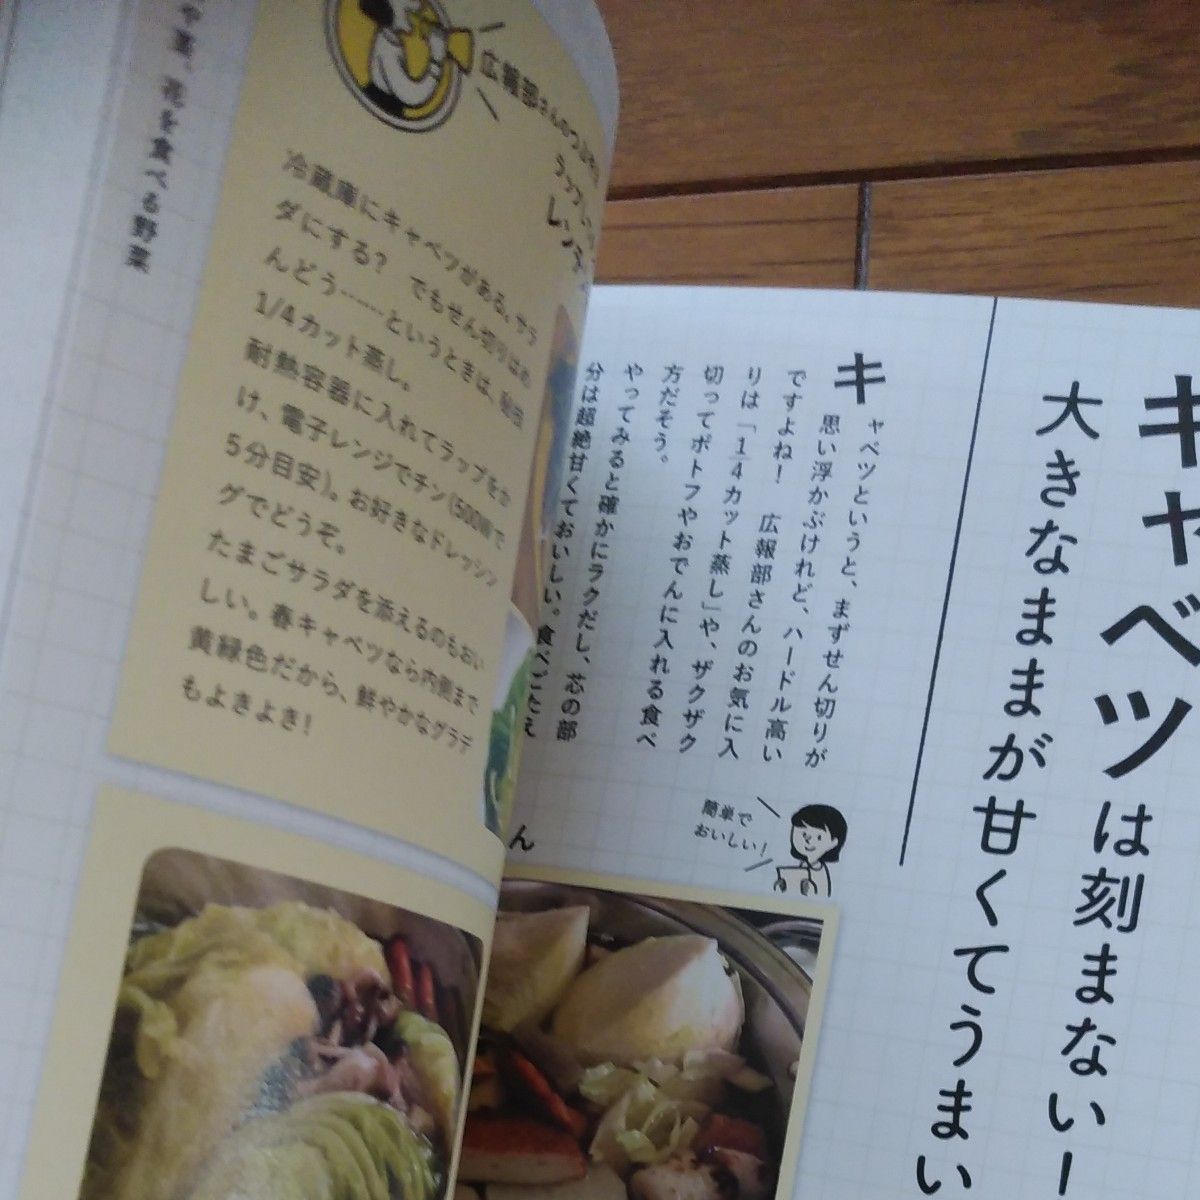 キャベツは刻まないー
大きなままが甘くてうまい
キ
ャベツというと、まずせん切りが
思い浮かぶけれど、ハードル高い
ですよね！　広報部さんのお気に入
りは「1/4カット蒸し」や、ザクザク
切ってポトフやおでんに入れる食べ
方だそう。
やってみると確かにラクだし、芯の部
分は超絶甘くておいしい。食べごたえ
ん
簡単で
おいしい！
広報部さんのつぶやき
レンチ
冷蔵庫にキャベツがある。サラ
ダにする？　でもせん切りはめ
んどう……というときは、秘技
1/4カット蒸し。
耐熱容器に入れてラップをか
け、電子レンジでチン（500Wで
5分目安）。お好きなドレッシン
グでどうぞ。
たまごサラダを添えるのもおい
しい。春キャベツなら内側まで
黄緑色だから、鮮やかなグラデ
もよきよき！
や葉、花を食べる野菜